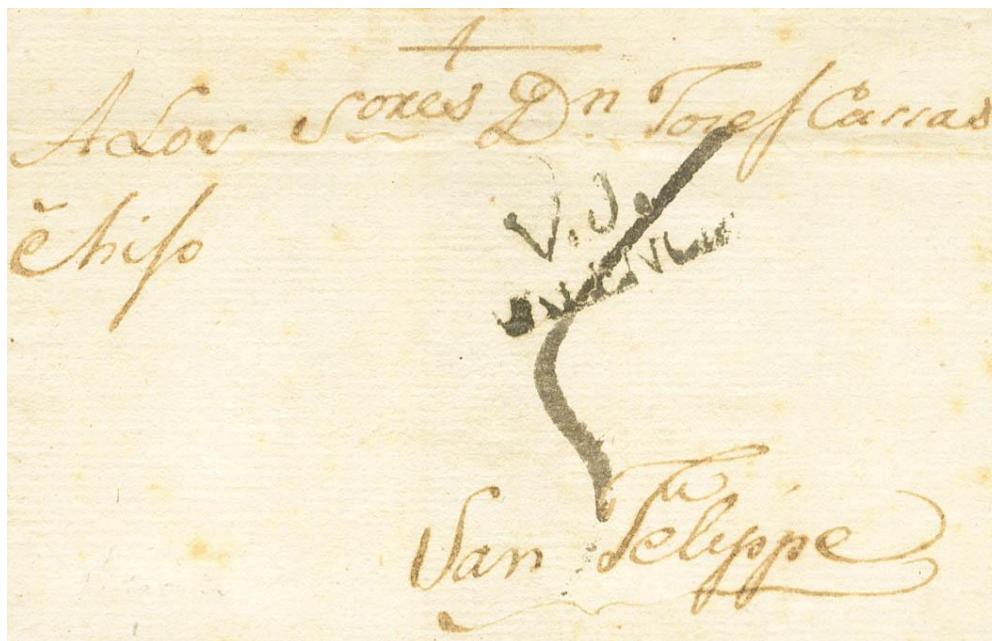 A Los Sores Dn Josef Carras
é hijo
V. de
San Felippe